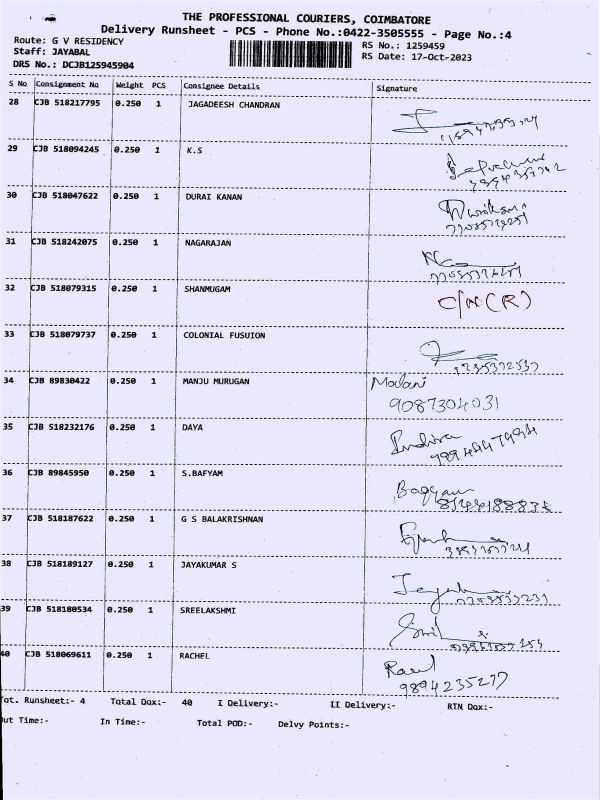 THE PROFESSIONAL COURIERS, COIMBATORE
Delivery Runsheet - PCS - Phone No.:0422-3505555 - Page No.:4
Route: G V RESIDENCY
Staff: JAYABAL
RS No.: 1259459
DRS No.: DCJB125945904
RS Date: 17-Oct-2023
S No Consignment No Weight PCS Consignee Details Signature
28 CJB 518217795 0.250 1 JAGADEESH CHANDRAN
29 CJB 518094245 0.250 1 K.S
30 CJB 518047622 0.250 1 DURAI KANAN
31 CJB 518242075 0.250 1 NAGARAJAN
32 CJB 518079315 0.250 1 SHANMUGAM C/N(R)
33 CJB 518079737 0.250 1 COLONIAL FUSUION
34 CJB 89830422 0.250 1 MANJU MURUGAN Malani
9087304031
35 CJB 518232176 0.250 1 DAYA Indira
36 CJB 89845950 0.250 1 S.BAFYAM Bagyam
37 CJB 518187622 0.250 1 G S BALAKRISHNAN
38 CJB 518189127 0.250 1 JAYAKUMAR S
39 CJB 518180534 0.250 1 SREELAKSHMI
40 CJB 518069611 0.250 1 RACHEL
9894235277
Tot. Runsheet:- 4 Total Dox:- 40 I Delivery:- II Delivery:- RTN Dox:-
Out Time:- In Time:- Total POD:- Delvy Points:-